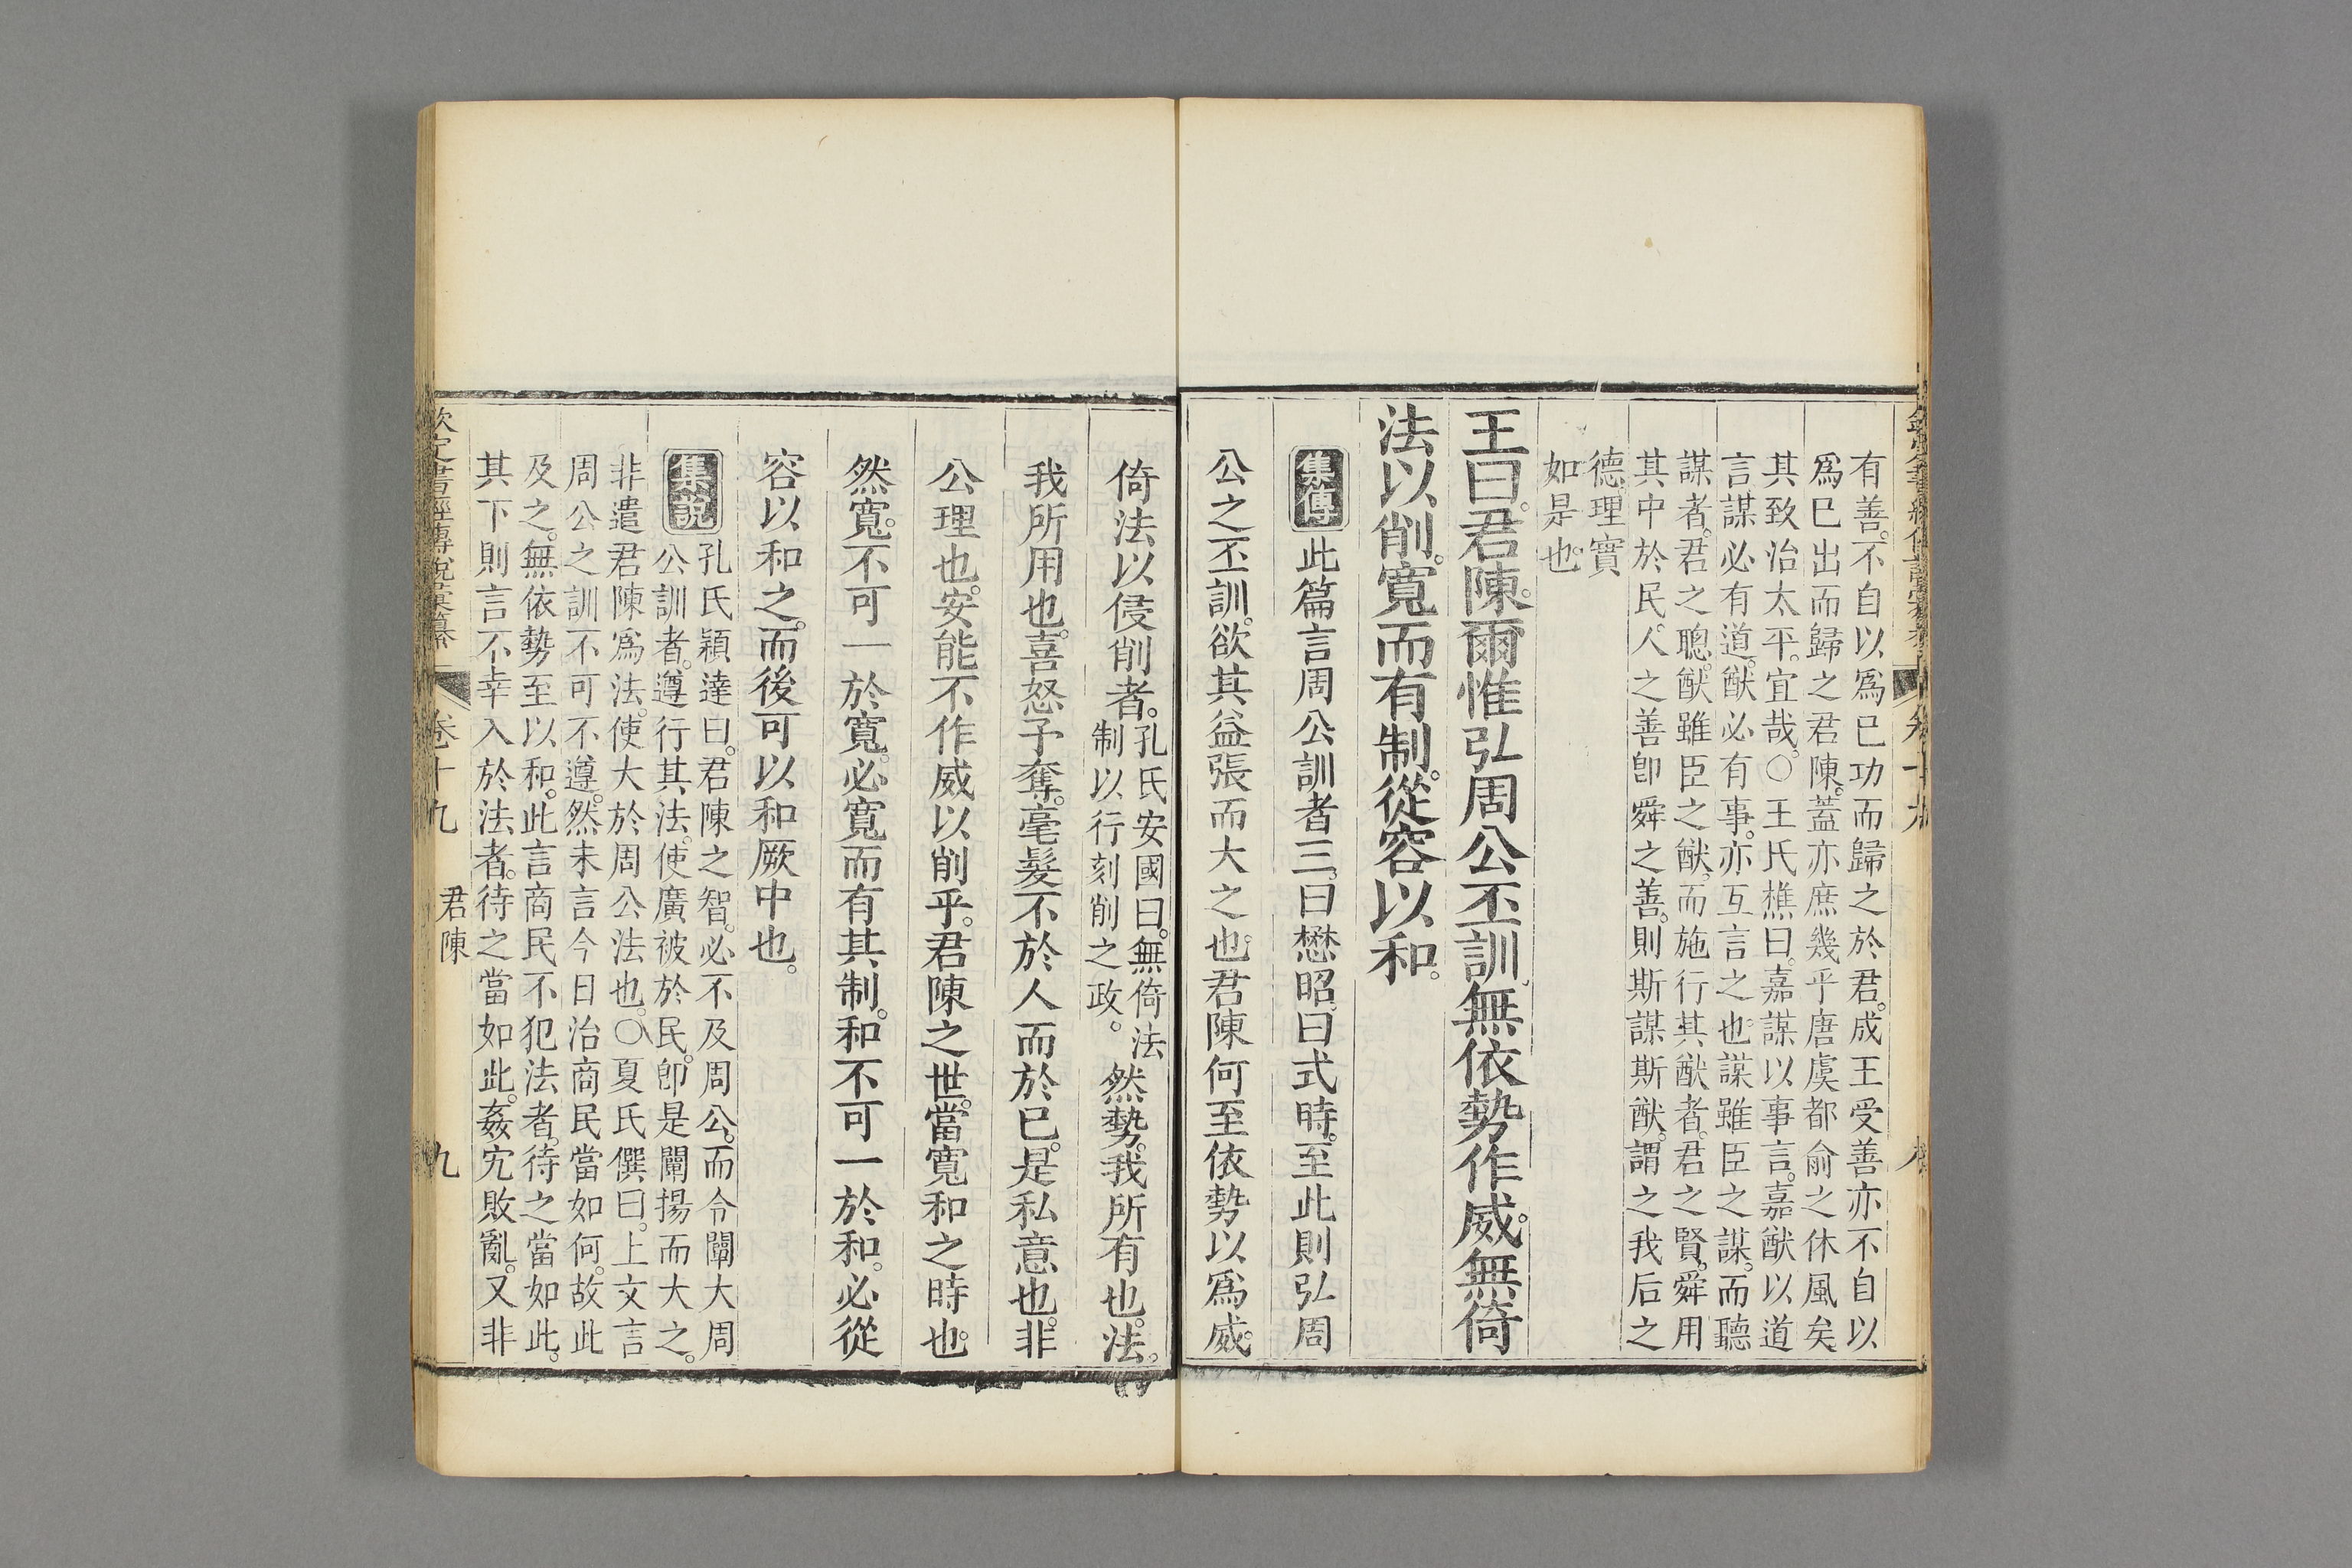 有善。不自以爲已功而歸之於君。成王受善亦不自以
爲已出而歸之君陳。蓋亦庶幾乎唐虞都俞之休風矣。
其致治太平。宜哉。○王氏樵曰。嘉謀以事言。嘉猷以道
言謀必有道。猷必有事。亦互言之也。謀雖臣之謀。而聽
謀者。君之聰。猷雖臣之猷。而施行其猷者。君之賢。舜用
其中於民。人之善卽舜之善。則斯謀斯猷。謂之我后之
德。理實
如是也。
王曰。君陳。爾惟弘周公丕訓。無依勢作威。無倚
法以削。寬而有制。從容以和。
集傳
此篇言周公訓者三。曰懋昭。曰式時。至此則弘周
公之丕訓。欲其益張而大之也。君陳何至依勢以爲威。
倚法以侵削者。孔氏安國曰。無倚法
制以行刻削之政。然勢。我所有也。法。
我所用也。喜怒予奪。毫髮不於人而於已。是私意也。非
公理也。安能不作威以削乎。君陳之世。當寬和之時也。
然寬。不可一於寬。必寬而有其制。和不可一於和。必從
容以和之。而後可以和厥中也。
集說
孔氏穎達曰。君陳之智。必不及周公。而令闡大周
公訓者。遵行其法。使廣被於民。卽是闡揚而大之。
非遣君陳爲法。使大於周公法也。○夏氏僎曰。上文言
周公之訓不可不遵。然未言今日治商民當如何。故此
及之。無依勢至以和。此言商民不犯法者。待之當如此。
其下則言不幸入於法者。待之當如此。姦宄敗亂。又非
欽定書經傳說彙纂
卷十九
君陳
九